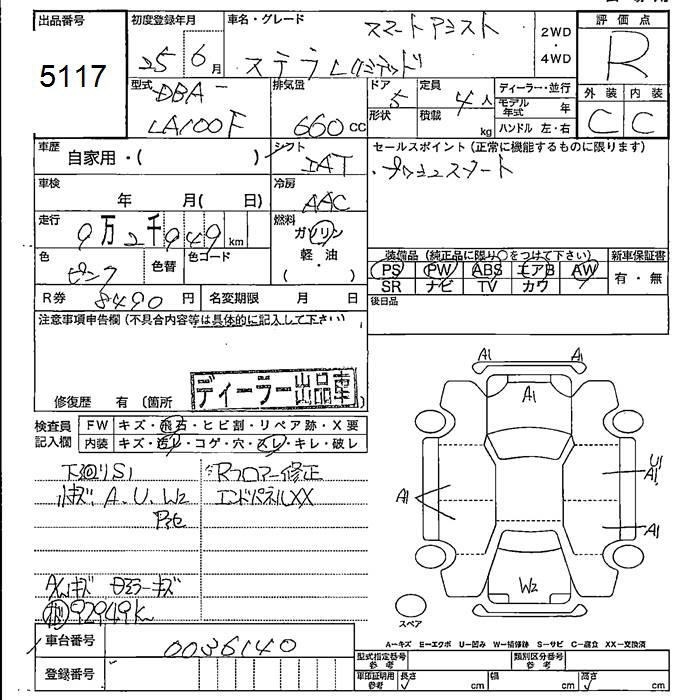 出品番号 初度登録年月 車名・グレード 評価点
5117 25 6月 スマートアシスト 2WD・4WD R
ステラ Lリミテッド
型式 排気量 ドア 定員 ディーラー・並行 外装 内装
DBA- 5 4人 モデル年式 年 C C
LA100F 660cc 形状 積載 kg ハンドル 左・右
車歴 自家用・( ) シフト IAT セールスポイント(正常に機能するものに限ります)
・プッシュスタート
車検 年 月( 日) 冷房 AAC
走行 9万2千949km 燃料 ガソリン
軽・油
( )
色 ピンク 色替 色コード
装備品(純正品に限り○をつけて下さい) 新車保証書
PS PW ABS エアB AW 有・無
SR ナビ TV カワ
R券 8490円 名変期限 月 日 後日品
注意事項申告欄(不具合内容等は具体的に記入して下さい)
ディーラー出品車
修復歴 有(箇所
検査員記入欄 FW キズ・飛石・ヒビ割・リペア跡・X要
内装 キズ・汚レ・コゲ・穴・スレ・キレ・破レ
下廻りS1 Rフロアー修正
小キズ A.U.W2 エンドパネルXX
A/Wキズ ミラーキズ
92949K
A1 A1
A1
A1 U1
A1
A1
W2
スペア
A-キズ E-エクボ U-凹み W-補修跡 S-サビ C-腐食 XX-交換済
車台番号 0036140
登録番号
型式指定番号 参考 類別区分番号 参考
車印証明用 参考 長さ cm 幅 cm 高さ cm